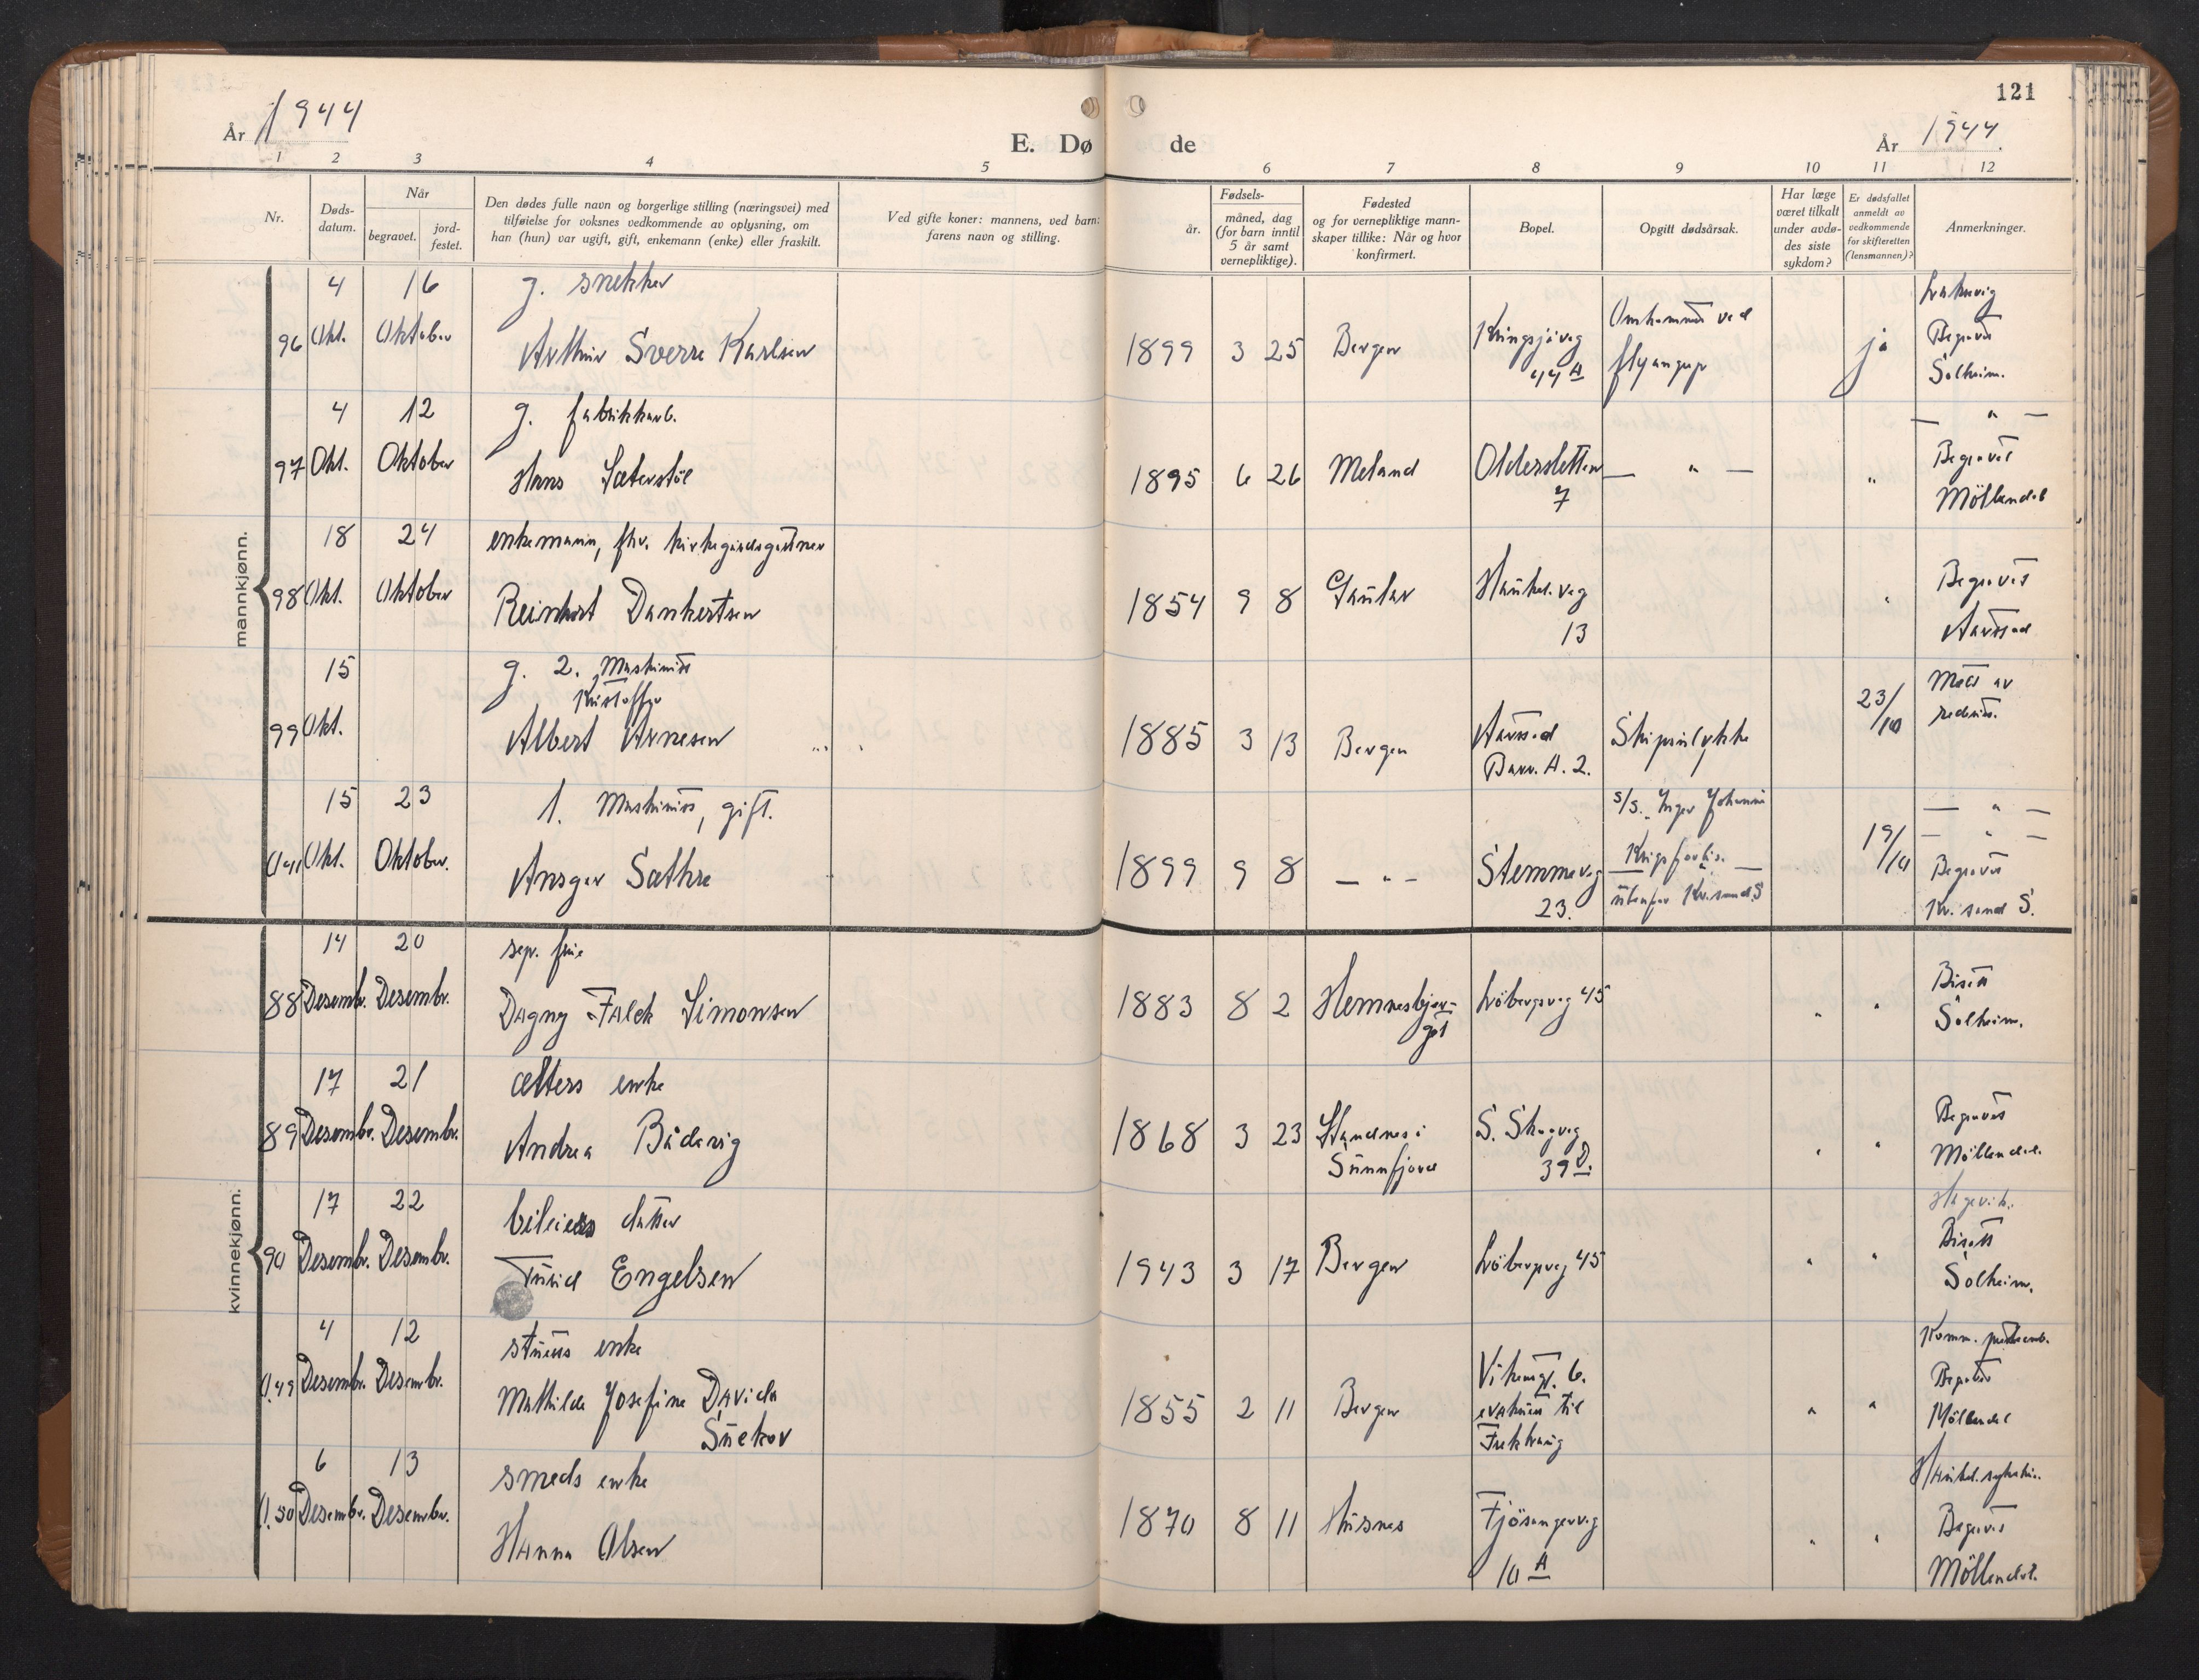 År 1944
E. Dø
de
121
År 1944.
1 2 3 4 5 6 7 8 9 10 11 12
Nr.
Døds-
datum.
Når
begravet.
jord-
festet.
Den dødes fulle navn og borgerlige stilling (næringsvei) med
tilføielse for voksnes vedkommende av oplysning, om
han (hun) var ugift, gift, enkemann (enke) eller fraskilt.
Ved gifte koner: mannens, ved barn:
farens navn og stilling.
Fødsels-
år.
måned, dag
(for barn inntil
5 år samt
vernepliktige).
Fødested
og for vernepliktige mann-
skaper tillike: Når og hvor
konfirmert.
Bopel.
Opgitt dødsårsak.
Har læge
været tilkalt
under avdø-
des siste
sykdom?
Er dødsfallet
anmeldt av
vedkommende
for skifteretten
(lensmannen)?
Anmerkninger.
mannkjønn.
4 16 g. snekker
96 Okt. Oktober Arthur Sverre Karlsen 1899 3 25 Bergen Kringsjåveg
44 A
Omkommet ved
flyangrep
ja
Begravet
Solheim.
4 12 g. fabrikkarb.
97 Okt. Oktober Hans Sæterstøl 1895 6 26 Meland Oldersletten
7
— " —
"
— " —
Begravet
Möllendal
18 24 enkemann, fhv. kirkegårdsgartner
98 Okt. Oktober Reinhart Dankertsen 1854 9 8 Gaular Haukel. veg
13
"
Begravet
Aarstad
15 g. 2. Maskinist
Kristoffer
99 Okt. Albert Arnesen 1885 3 13 Bergen Aarstad
Barr. A. 2.
Skipsulykke
23/10
Meld av
rederiet.
15 23 1. Maskinist, gift.
s/s. "Inger Johanne
— " —
0.41 Okt. Oktober. Ansgar Sæthre 1899 9 8 — " — Stemmeveg
23.
Krigsforlis.
utenfor Kr.sand S
19/10
— " —
Begravet
Kr. sand S.
kvinnekjønn.
14 20 sep. frue
88 Desembr. Desembr. Dagny Falck Simonsen 1883 8 2 Hemnesbjer-
get
Løbergsveg 45
"
"
Bisatt
Solheim.
17 21 ætters enke
89 Desembr. Desembr. Andrea Båderig 1868 3 23 Standnes i
Sunnfjord
S. Skogveg
39 D.
"
"
Begravet
Möllendal.
17 22 bileiers datter
90 Desembr. Desembr. Turid Engelsen 1943 3 17 Bergen Løbergsveg 45
"
"
Hagevik.
Bisatt
Solheim.
4 12 stuerts enke
0.49 Desembr. Desembr. Mathilde Josefine Davida
Suekov
1855 2 11 Bergen Vikengt. 6.
evakuert til
Frekhaug
"
"
Begravet
Möllendal
6 13 smeds enke
0.50 Desembr. Desembr. Hanna Olsen 1870 8 11 Husnes Fjösangerveg
10 A
"
"
Haukel. sykehus.
Begravet
Möllendal.